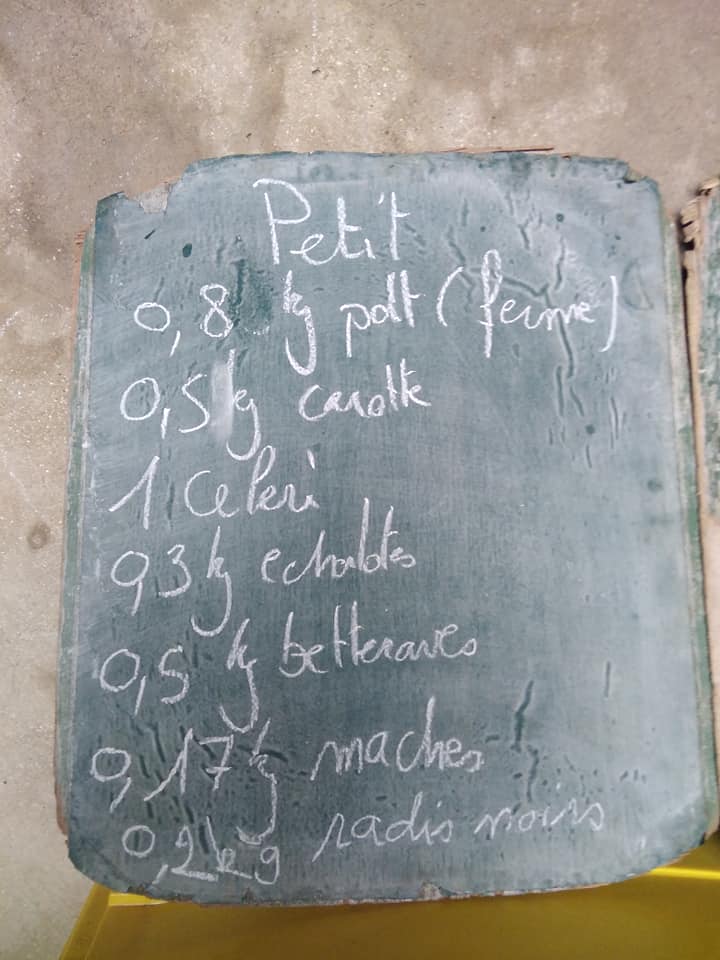 Petit
0,8 kg pdt (ferme)
0,5 kg carotte
1 Celeri
0,3 kg echalotes
0,5 kg betteraves
0,17 kg maches
0,2 kg radis noirs